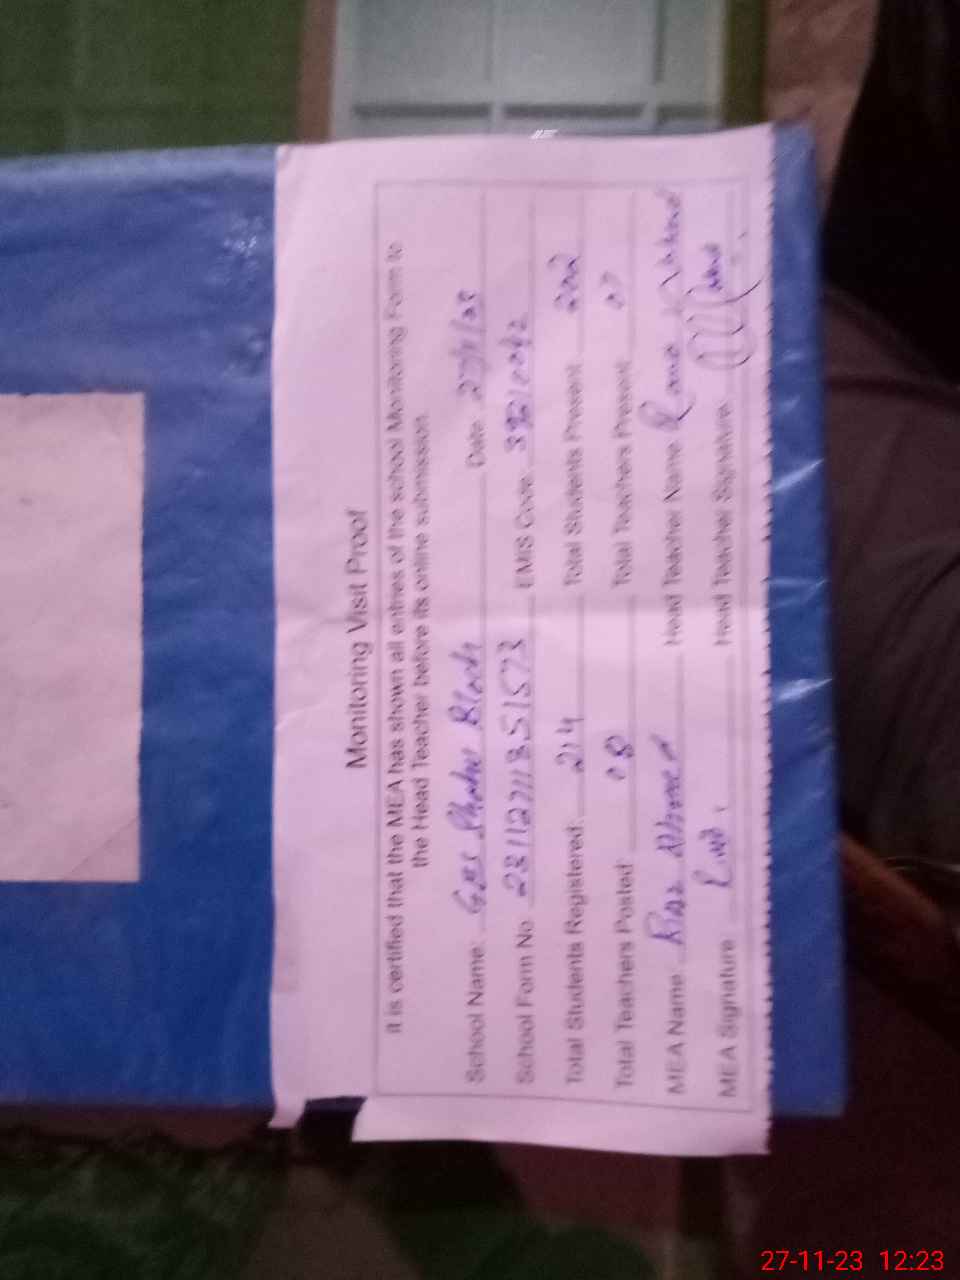 Monitoring Visit Proof
It is certified that the MEA has shown all entries of the school Monitoring Form to
the Head Teacher before its online submission.
School Name: GES Blach Date:
School Form No. EMIS Code: 39210042
Total Students Registered: 214 Total Students Present 202
Total Teachers Posted: 08 Total Teachers Present 07
MEA Name: Riaz Ahmed Head Teacher Name Rana
MEA Signature Head Teacher Signature:
27-11-23 12:23